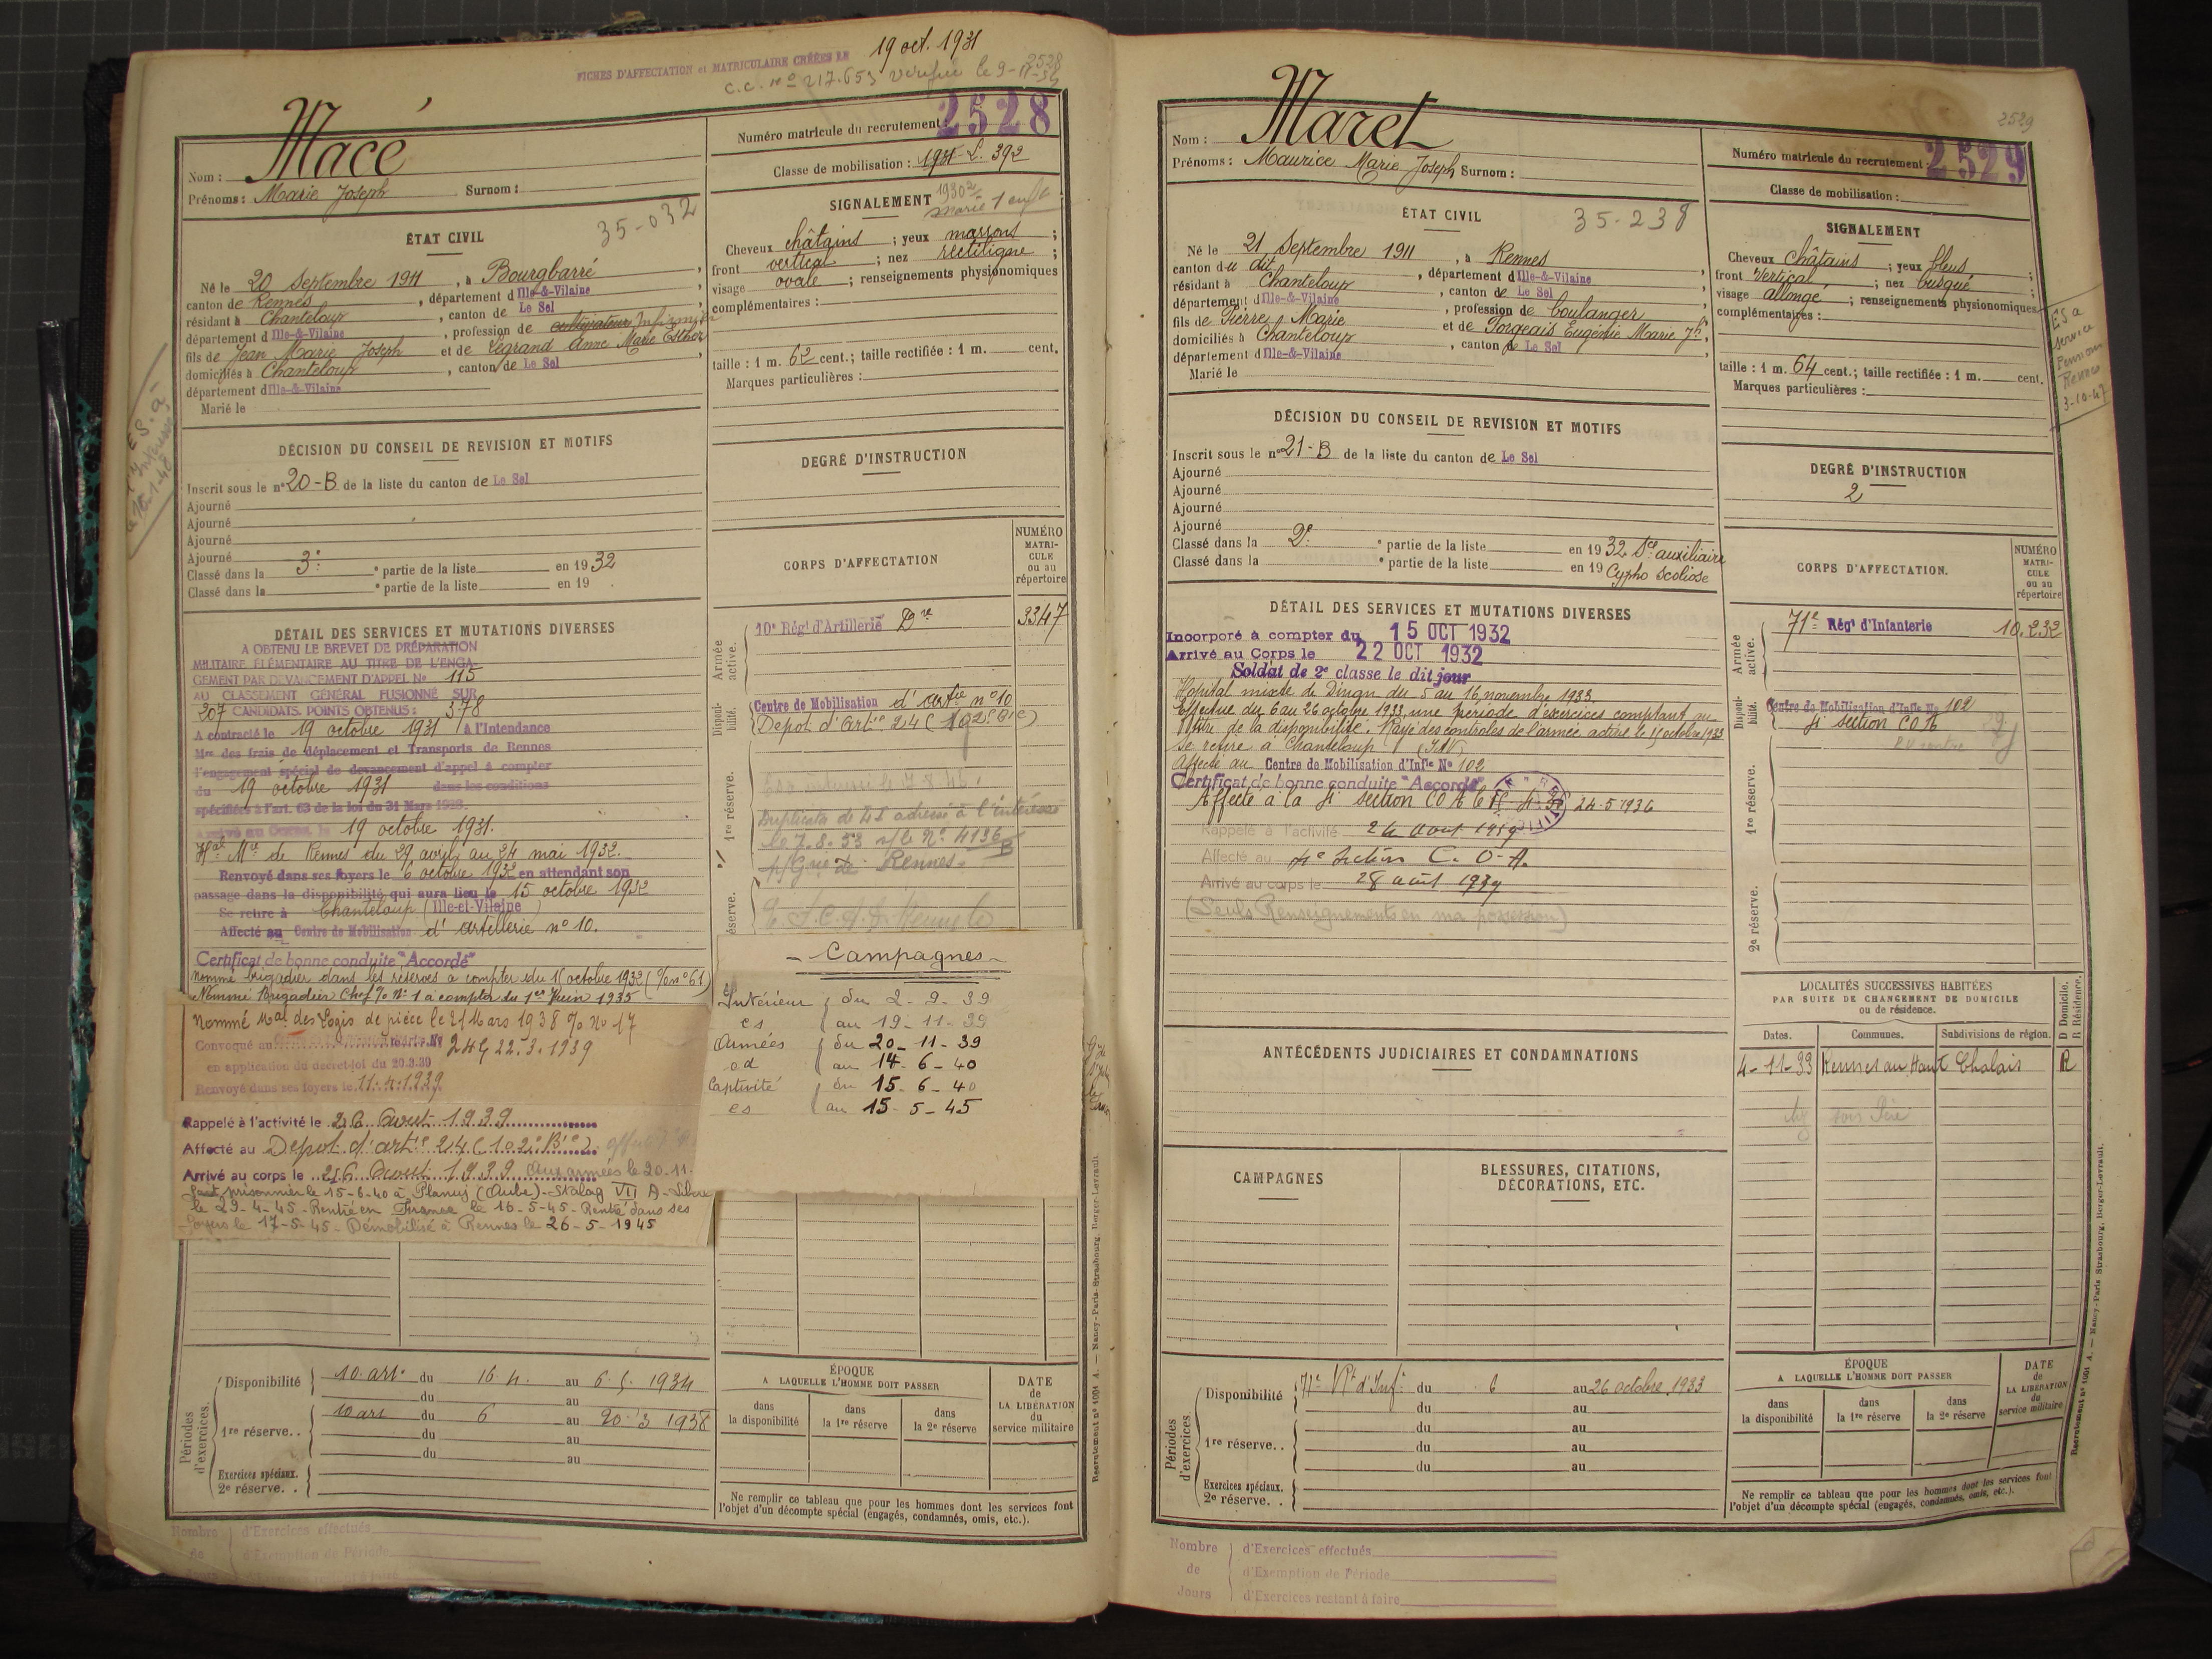 FICHES D'AFFECTATION et MATRICULAIRE CRÉÉES LE 19 oct. 1931
C.C. nº 217.653 Vérifié le 9-11-
2528
Nom : Macé
Prénoms : Marie Joseph Surnom :
Numéro matricule du recrutement : 2528
Classe de mobilisation : 1931 - L. 392
ÉTAT CIVIL
35-032
Né le 20 Septembre 1911, à Bourgbarré,
canton de Rennes, département d Ille-&-Vilaine,
résidant à Chanteloup, canton de Le Sel,
département d Ille-&-Vilaine, profession de cultivateur
fils de Jean Marie Joseph et de Legrand Anne Marie Esther
domiciliés à Chanteloup, canton de Le Sel,
département d Ille-&-Vilaine
Marié le
SIGNALEMENT
marié 1 enft
Cheveux châtains ; yeux marrons ;
front vertical ; nez rectiligne ;
visage ovale ; renseignements physionomiques
complémentaires :
taille : 1 m. 62 cent.; taille rectifiée : 1 m. cent.
Marques particulières :
DÉCISION DU CONSEIL DE REVISION ET MOTIFS
Inscrit sous le nº 20-B de la liste du canton de Le Sel
Ajourné
Ajourné
Ajourné
Ajourné
Classé dans la 3e ᵉ partie de la liste en 1932
Classé dans la ᵉ partie de la liste en 19 .
DEGRÉ D'INSTRUCTION
DÉTAIL DES SERVICES ET MUTATIONS DIVERSES
A OBTENU LE BREVET DE PRÉPARATION
MILITAIRE ÉLÉMENTAIRE AU TITRE DE L'ENGA-
GEMENT PAR DEVANCEMENT D'APPEL Nº 115
AU CLASSEMENT GÉNÉRAL FUSIONNÉ SUR
207 CANDIDATS. POINTS OBTENUS : 378
A contracté le 19 octobre 1931 à l'Intendance
Mre des frais de déplacement et Transports de Rennes
l'engagement spécial de devancement d'appel à compter
du 19 octobre 1931 dans les conditions
spécifiées à l'art. 63 de la loi du 31 Mars 1928.
Arrivé au Corps le 19 octobre 1931.
Hal Mre de Rennes du 29 avril au 24 mai 1932.
Renvoyé dans ses foyers le 6 octobre 1932 en attendant son
passage dans la disponibilité qui aura lieu le 15 octobre 1932
Se retire à Chanteloup (Ille-et-Vilaine)
Affecté au Centre de Mobilisation d'artillerie nº 10.
Certificat de bonne conduite "Accordé"
nommé brigadier dans les réserves à compter du 16 octobre 1932 (% nº 61)
Nommé Brigadier Chef % Nº 1 à compter du 1er Juin 1935
Nommé Mal des Logis de pièce le 21 Mars 1938 % No 17
Convoqué au 22.3.1939
en application du decret-loi du 20.3.39
Renvoyé dans ses foyers le 11.4.1939.
Rappelé à l'activité le 26 Aout 1939
Affecté au Dépot d'artie 24 (102e Bie)
Arrivé au corps le 26 Aout 1939 Aux armées le 20-11-
prisonnier le 15-6-40 à Plancy (Aube) - Stalag VII A - Libéré
le 29-4-45 - Rentré en France le 16-5-45 - Rentré dans ses
foyers le 17-5-45 - Démobilisé à Rennes le 26-5-1945
CORPS D'AFFECTATION
NUMÉRO MATRI-CULE ou au répertoire
Armée active.
10e Régt d'Artillerie Dre 3347
Disponi-bilité.
Centre de Mobilisation d'artie nº 10
Depot d'Artie 24 (102e Bie)
1re réserve.
Duplicata de 41 adressé à l'intéressé
le 7.8.53 s/le Nº 4136
p/Gie de Rennes.
- Campagnes -
Intérieur du 2-9-39
cs au 19-11-39
Armées du 20-11-39
cd au 14-6-40
Captivité du 15-6-40
cs au 15-5-45
Périodes d'exercices.
Disponibilité 10 art. du 16.4. au 6.5. 1934
du au
1re réserve. . 10 art du 6 au 20.3 1938
du au
du au
Exercices spéciaux.
2e réserve. .
ÉPOQUE
A LAQUELLE L'HOMME DOIT PASSER
dans la disponibilité
dans la 1re réserve
dans la 2e réserve
DATE de LA LIBÉRATION du service militaire
Ne remplir ce tableau que pour les hommes dont les services font
l'objet d'un décompte spécial (engagés, condamnés, omis, etc.).
Recrutement nº 1001 A. — Nancy-Paris-Strasbourg, Berger-Levrault.
Nombre d'Exercices effectués
de d'Exemption de Période
2529
Nom : Maret
Prénoms : Maurice Marie Joseph Surnom :
Numéro matricule du recrutement : 2529
Classe de mobilisation :
ÉTAT CIVIL
35-238
Né le 21 Septembre 1911, à Rennes
canton du dit, département d Ille-&-Vilaine,
résidant à Chanteloup, canton de Le Sel
département d Ille-&-Vilaine, profession de boulanger
fils de Pierre Marie et de Porgeais Eugénie Marie Jh,
domiciliés à Chanteloup, canton de Le Sel
département d Ille-&-Vilaine
Marié le
SIGNALEMENT
Cheveux châtains ; yeux bleus ;
front Vertical ; nez busqué ;
visage allongé ; renseignements physionomiques
complémentaires :
taille : 1 m. 64 cent.; taille rectifiée : 1 m. cent.
Marques particulières :
ES à
service
Pension
Rennes
3-10-47
DÉCISION DU CONSEIL DE REVISION ET MOTIFS
Inscrit sous le nº 21-B de la liste du canton de Le Sel
Ajourné
Ajourné
Ajourné
Ajourné
Classé dans la 2e ᵉ partie de la liste en 1932 Sce auxiliaire
Classé dans la ᵉ partie de la liste en 19 Cypho scoliose
DEGRÉ D'INSTRUCTION
2
DÉTAIL DES SERVICES ET MUTATIONS DIVERSES
Incorporé à compter du 15 OCT 1932
Arrivé au Corps le 22 OCT 1932
Soldat de 2e classe le dit jour
Hopital mixte de Dinan du 5 au 16 novembre 1933
Effectue du 6 au 26 octobre 1933, une période d'exercices comptant au
titre de la disponibilité. Rayé des contrôles de l'armée active le 15 octobre 1933
Se retire à Chanteloup (I&V)
Affecté au Centre de Mobilisation d'Infie Nº 102
Certificat de bonne conduite "Accordé"
Affecté à la 4e section COA 24-5-1936
Rappelé à l'activité 24 aout 1939
Affecté au 4e Section C.O.A.
Arrivé au corps le 28 août 1939
(Seuls Renseignements en ma possession)
CORPS D'AFFECTATION.
NUMÉRO MATRI-CULE ou au répertoire
Armée active.
71e Régt d'Infanterie 10.232
Disponi-bilité.
Centre de Mobilisation d'Infie No 102
4e section COA
1re réserve.
2e réserve.
LOCALITÉS SUCCESSIVES HABITÉES
PAR SUITE DE CHANGEMENT DE DOMICILE
ou de résidence.
Dates. Communes. Subdivisions de région. D Domicile. R Résidence.
4-11-33 Rennes au Haut Chalais R
ANTÉCÉDENTS JUDICIAIRES ET CONDAMNATIONS
CAMPAGNES
BLESSURES, CITATIONS,
DÉCORATIONS, ETC.
Périodes d'exercices.
Disponibilité 71e Rt d'Inf. du 6 au 26 octobre 1933
du au
1re réserve. . du au
du au
du au
Exercices spéciaux.
2e réserve. .
ÉPOQUE
A LAQUELLE L'HOMME DOIT PASSER
dans la disponibilité
dans la 1re réserve
dans la 2e réserve
DATE de LA LIBÉRATION du service militaire
Ne remplir ce tableau que pour les hommes dont les services font
l'objet d'un décompte spécial (engagés, condamnés, omis, etc.).
Recrutement nº 1001 A. — Nancy-Paris Strasbourg, Berger-Levrault.
Nombre d'Exercices effectués
de d'Exemption de Période
Jours d'Exercices restant à faire